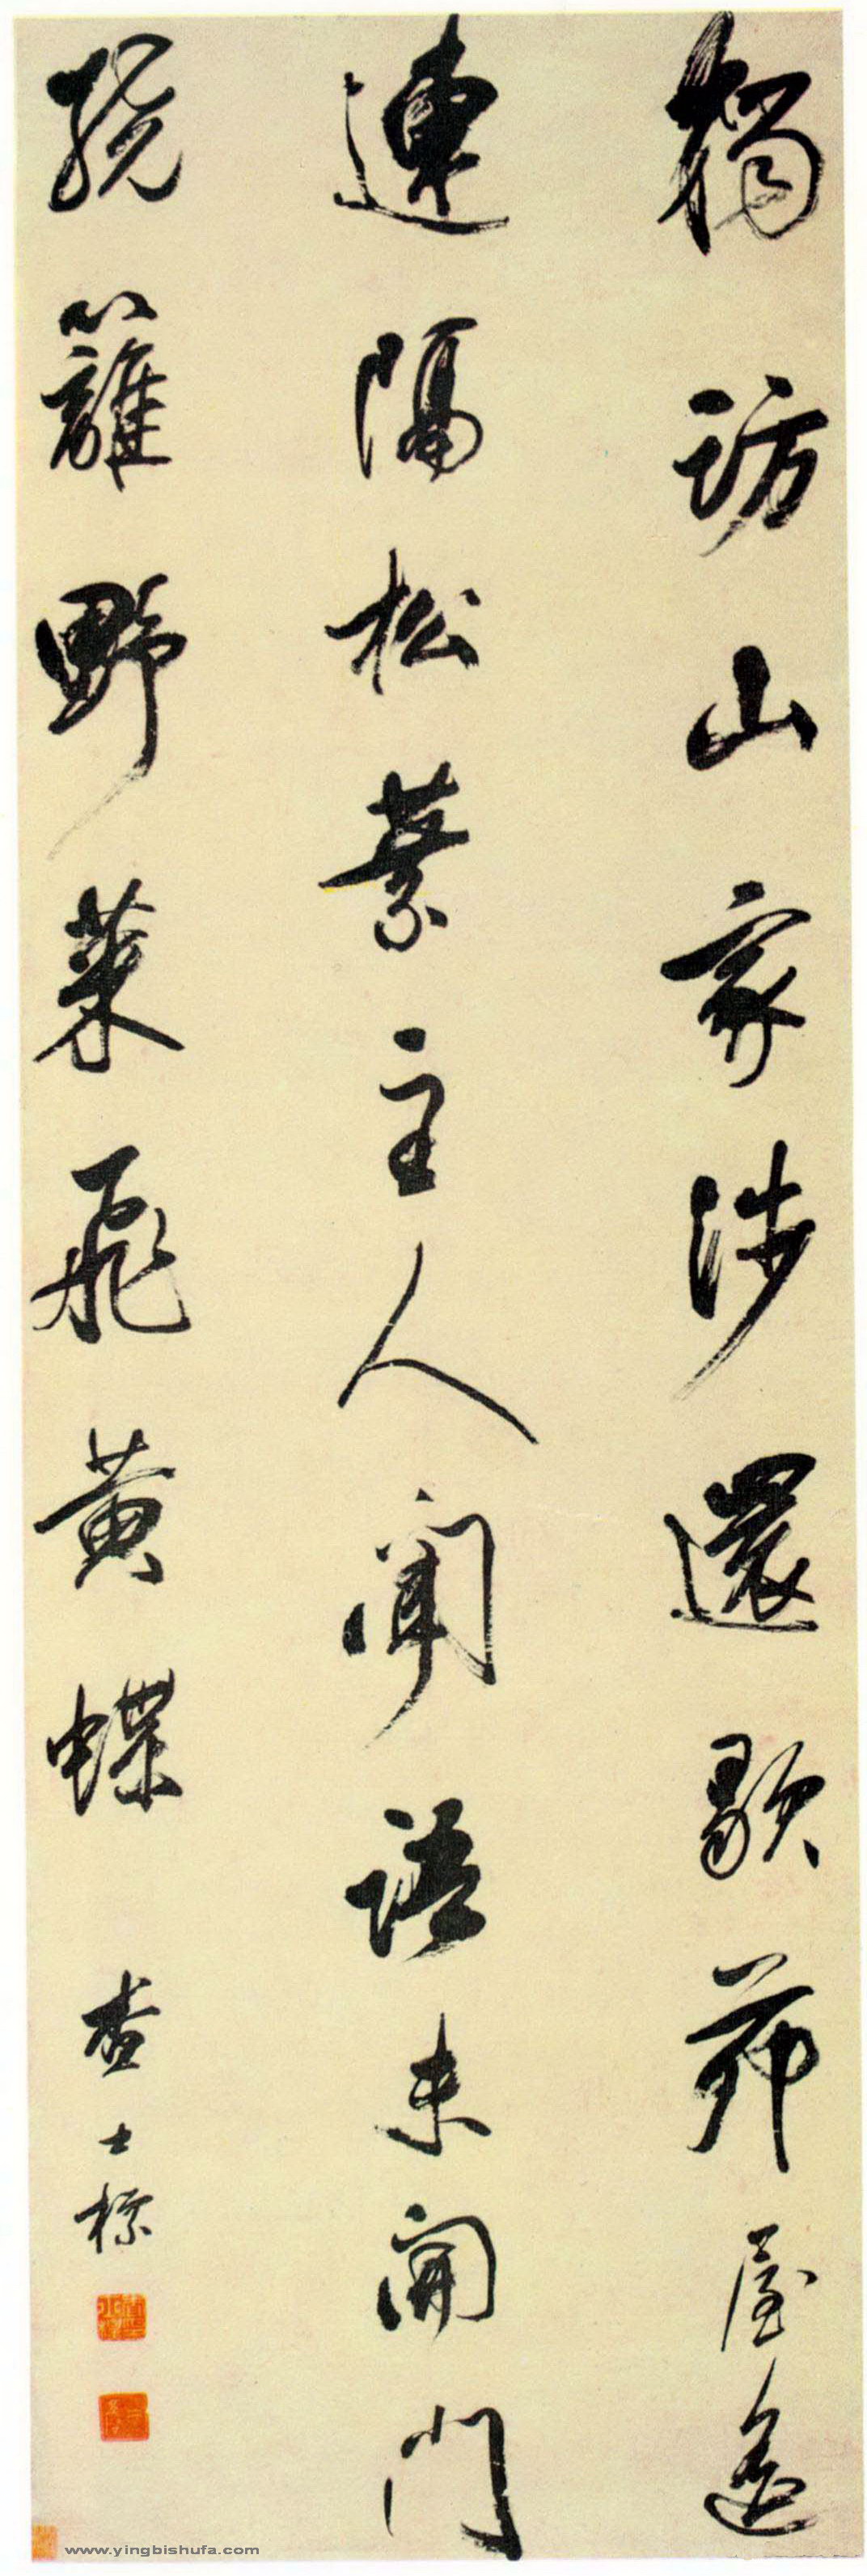 獨訪山家涉還歇茆屋遙
連隔松葉主人聞語未開門
繞籬野菜飛黄蝶 查士標
www.yingbishufa.com